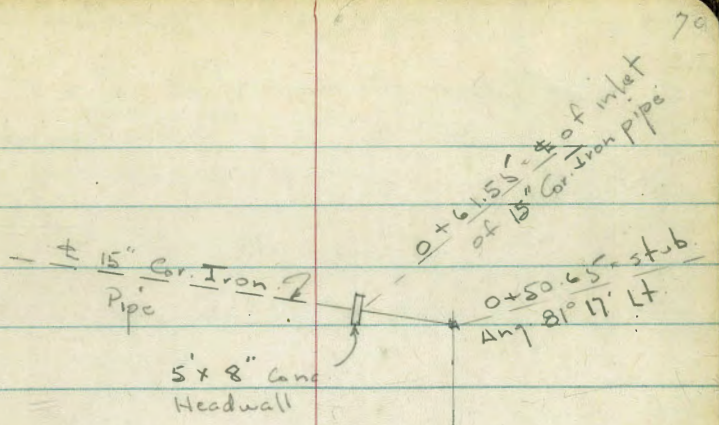 70
0+61.55 = ℄ of inlet
of 15" Cor. Iron pipe
℄ 15" Cor. Iron
Pipe
0+50.65 = stub
Ang 81° 17' Lt.
5' x 8" Conc
Headwall